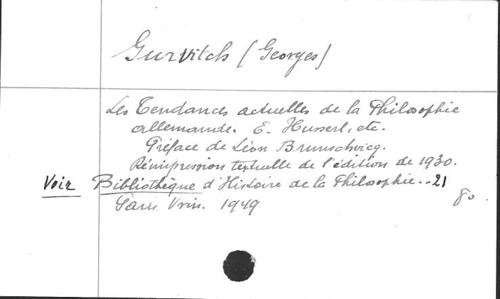 Gurvitch (Georges)
Les Tendances actuelles de la Philosophie
allemande. E. Husserl, etc.
Préface de Léon Brunschvicg.
Réimpression textuelle de l'édition de 1930.
Voir Bibliothèque d'Histoire de la Philosophie.-21
Paris. Vrin. 1949
8o